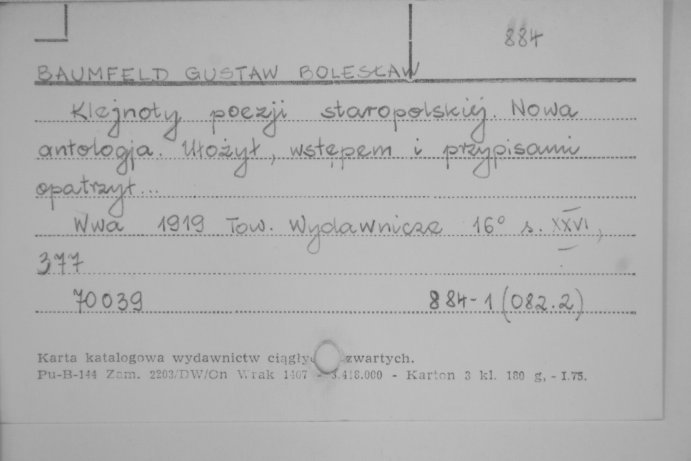 884
BAUMFELD GUSTAW BOLESŁAW
Klejnoty poezji staropolskiej. Nowa
antologja. Ułożył, wstępem i przypisami
opatrzył...
Wwa 1919 Tow. Wydawnicze 16° s. XXVI,
377
70039 884-1(082.2)
Karta katalogowa wydawnictw zwartych.
Pu-B-144 Zam. 2203/DW/On Wrak 1407 - 3.418.000 - Karton 3 kl. 180 g. - I.75.